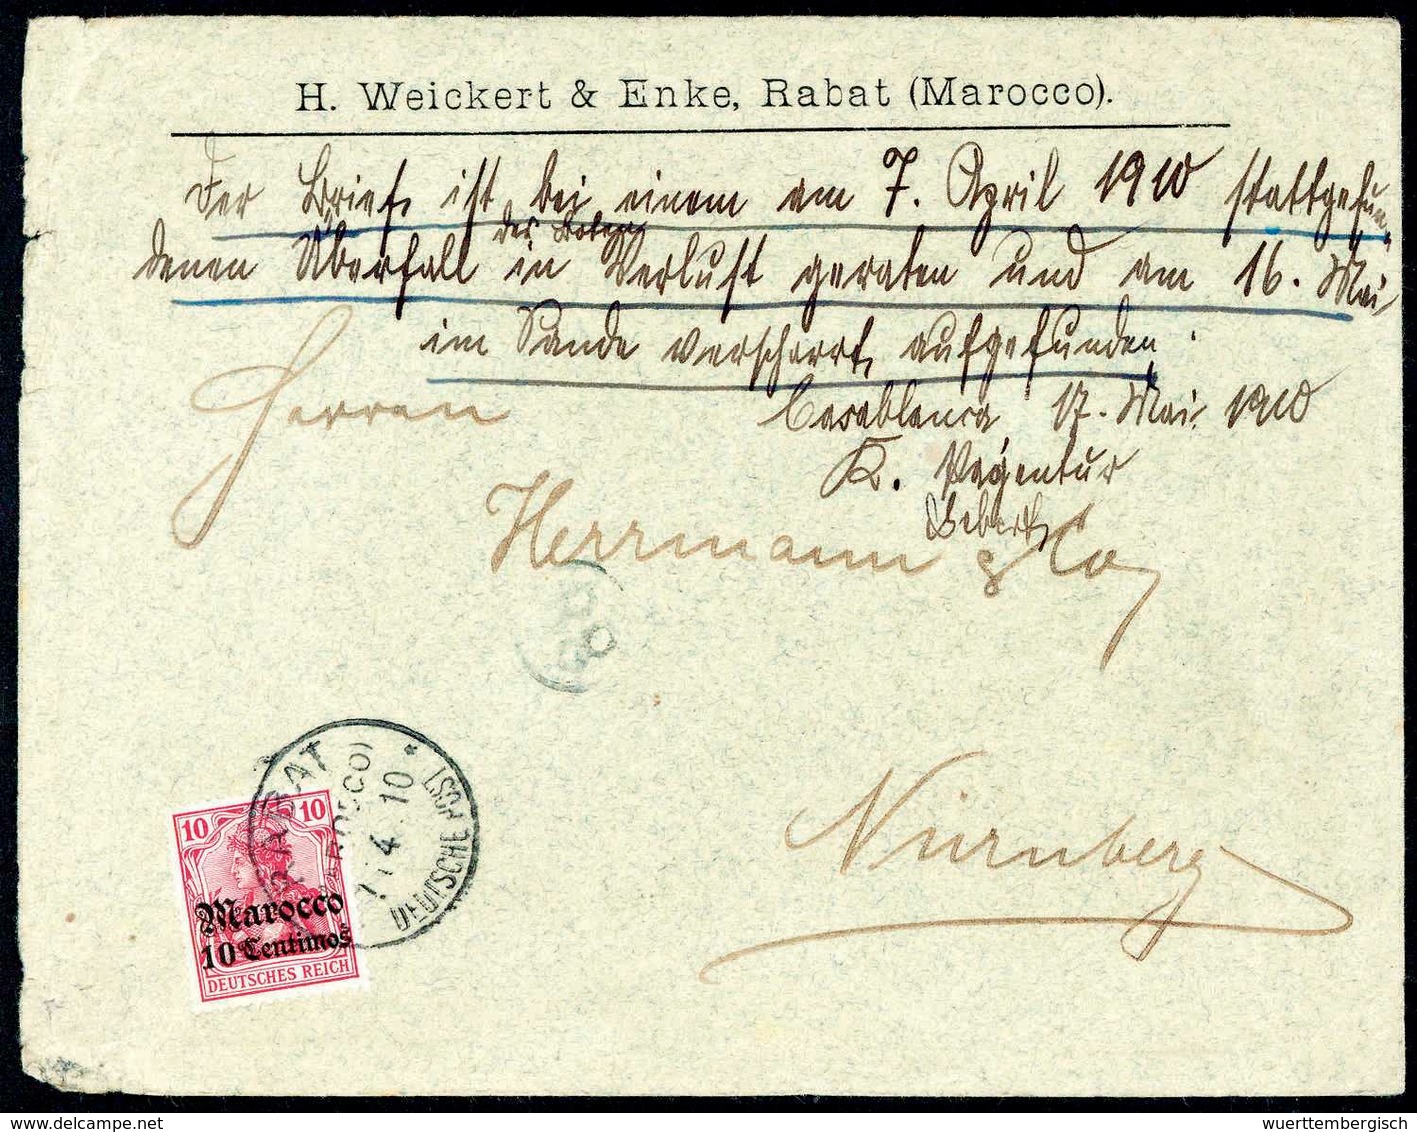 H. Weickert & Enke, Rabat (Marocco).
Der Brief ist bei einem am 7. April 1910 stattgefun-
denen Überfall des Boten in Verlust geraten und am 16. Mai
im Sande verscharrt aufgefunden.
Casablanca 17. Mai 1910
K. Pagentur
Herren
Herrmann & Co,
Nürnberg
RABAT
(MAROCCO)
4 10
DEUTSCHE POST
10 10
Marocco
10 Centimos
DEUTSCHES REICH
wuerttembergisch